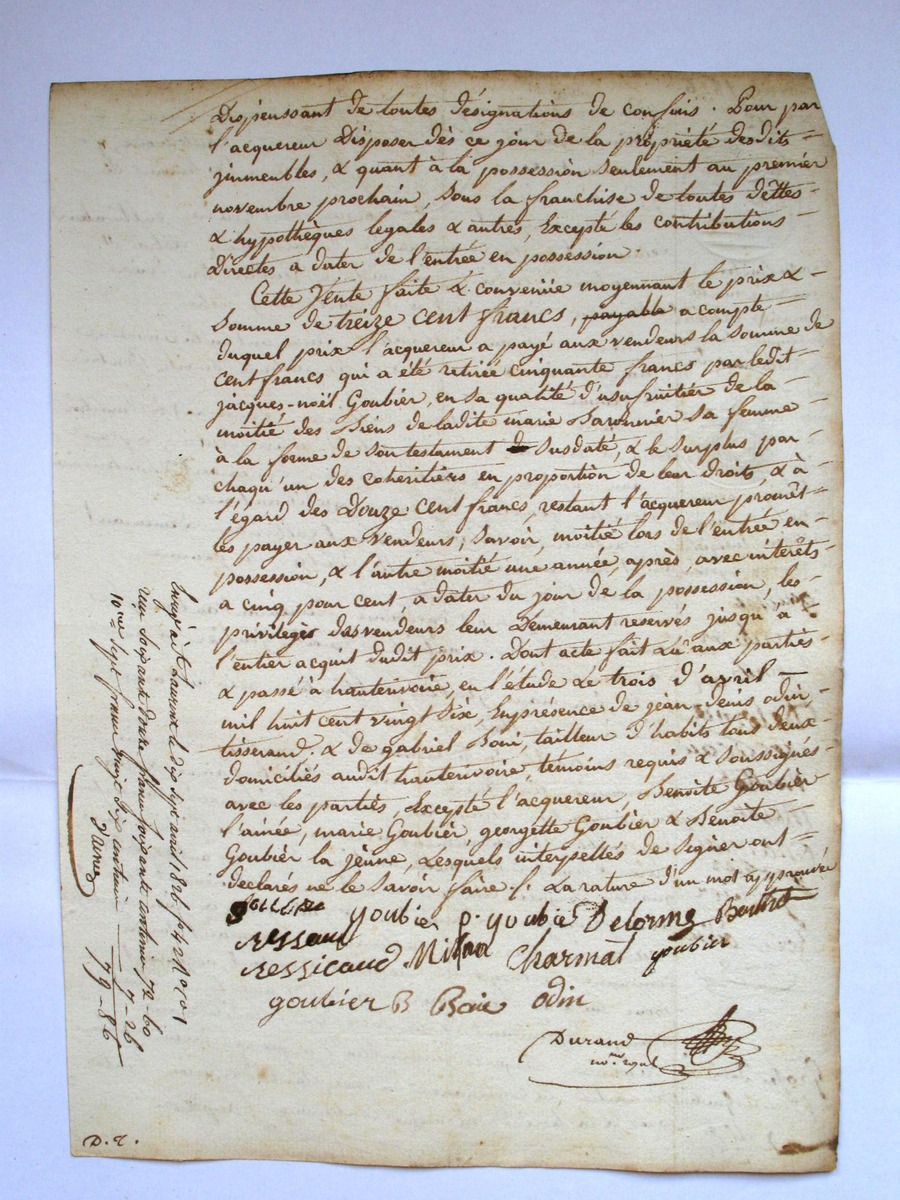 Dispenssant de toutes désignations de confins. Pour par
l'acquereur Disposer dès ce jour de la propriété desdits
immeubles, & quant à la possession seulement au premier
novembre prochain, sous la franchise de toutes dettes
& hypothèques legales & autres, Excepté les contributions
Directes a dater de l'entrée en possession.
Cette Vente faite & convenue moyennant le prix &
somme de treize cent francs, payable a compte
duquel prix l'acquereur a payé aux vendeurs la somme de
cent francs qui a été retirée cinquante francs par ledit
jacques-noël Goubier, en sa qualité d'usufruitier de la
moitié des Biens de ladite marie sa femme
à la forme de son testament susdaté, & le surplus par
chaqu'un des coheritiers en proportion de leur droits, & à
l'égard des Douze cent francs, restant l'acquereur promêt
les payer aux vendeurs, savoir, moitié lors de l'entrée en
possession, & l'autre moitié une année, après, avec intérêts
a cinq pour cent, a dater du jour de la possession, les
privilèges des vendeurs leur Demeurant reservés jusqu'à
l'entier acquit dudit prix. Dont acte fait Lu aux parties
& passé à hauterivoire, en l'étude Le trois d'avril
mil huit cent vingt Six, En présence de jean-denis odin
tisserand. & de gabriel Boni, tailleur d'habits tous deux
domiciliés audit hauterivoire, témoins requis & soussignés
avec les parties, Excepté l'acquereur, Benoite Goubier
l'ainée, marie Goubier, georgette Goubier & Benoite
Goubier la jeune, Lesquels interpellés de signer ont
declarés ne le savoir faire. /. La rature d'un mot approuvée
goubier p. goubier Delorme
ressicaud Charmat goubier
goubier B odin
Durand
no.re royal
le dix sept avril 1826
reçu soixante douze francs soixante centimes 72-60
10.me sept francs vingt six centimes 7-26
79-86
D. r.